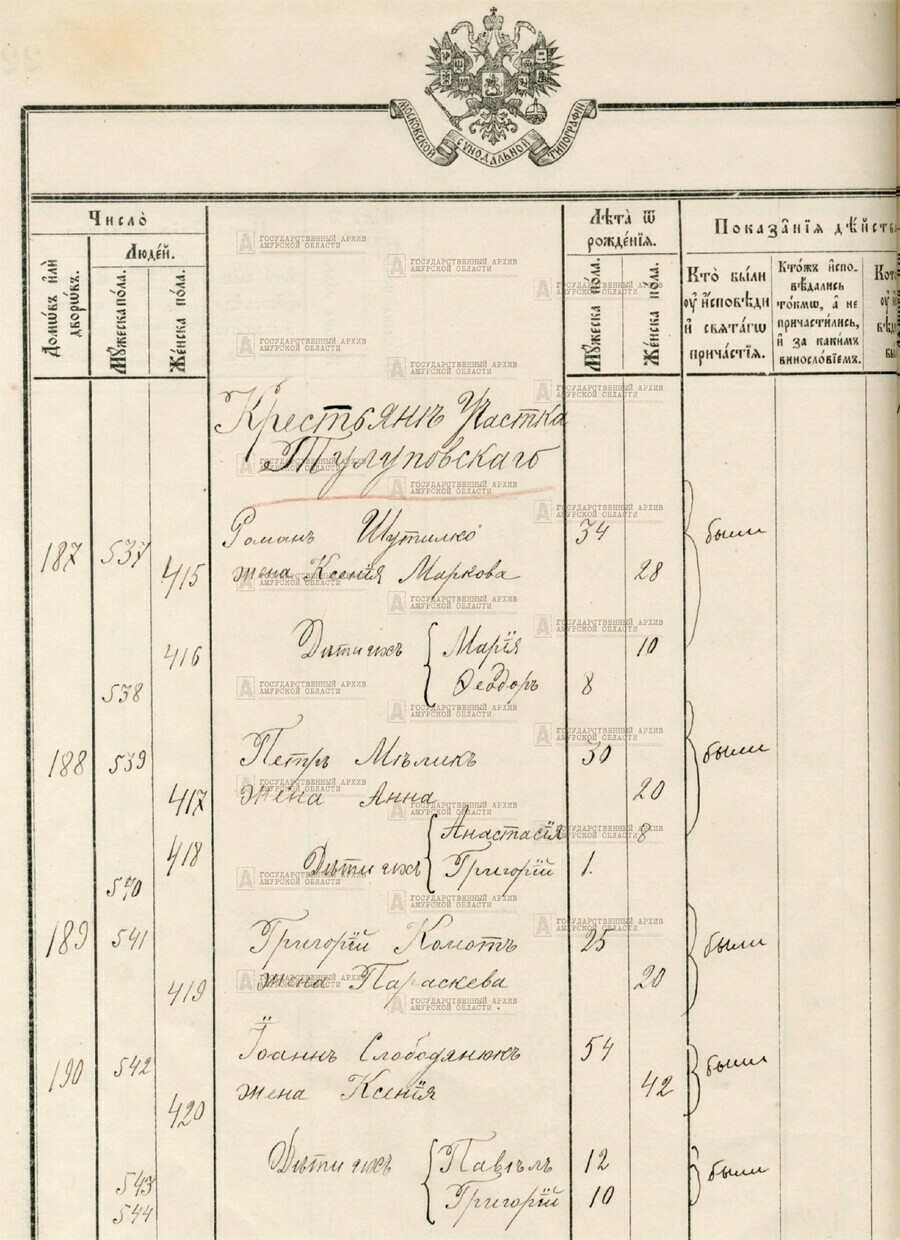 МОСКОВСКОЙ СѴНОДАЛЬНОЙ ТИПОГРАФІИ
Число̀
Домѡ́въ и҆лѝ дворѡ́въ.
Люде́й.
Мꙋ́жеска по́ла.
Же́нска по́ла.
Лѣ́та ѿ рожде́нїѧ.
Мꙋ́жеска по́ла.
Же́нска по́ла.
Показа̑нїѧ дѣ́йств
Кто̀ бы́ли
оу҆ и҆́сповѣди
и҆ свѧта́гѡ
прича́стїѧ.
Кто́жъ и҆спо-
вѣ́дались
то́кмѡ, а҆ не
причасти́лись,
и҆ за каки́мъ
винословїемъ.
Кот
оу҆ и҆
вѣ
бы
Крестьянъ Участка
Тулуповскаго
187 537 Романъ Шутилко 34 были
415 жена Ксенія Маркова 28
416 Дѣти ихъ Марія 10
538 Ѳеодоръ 8
188 539 Петръ Мѣликъ 30 были
417 жена Анна 20
418 Дѣти ихъ Анастасія 8
570 Григорій 1.
189 541 Григорій Комотъ 25 были
419 жена Параскева 20
190 542 Іоаннъ Слободянюкъ 54 были
420 жена Ксенія 42
543 Дѣти ихъ Павѣлъ 12 были
544 Григорій 10
ГОСУДАРСТВЕННЫЙ АРХИВ
АМУРСКОЙ ОБЛАСТИ